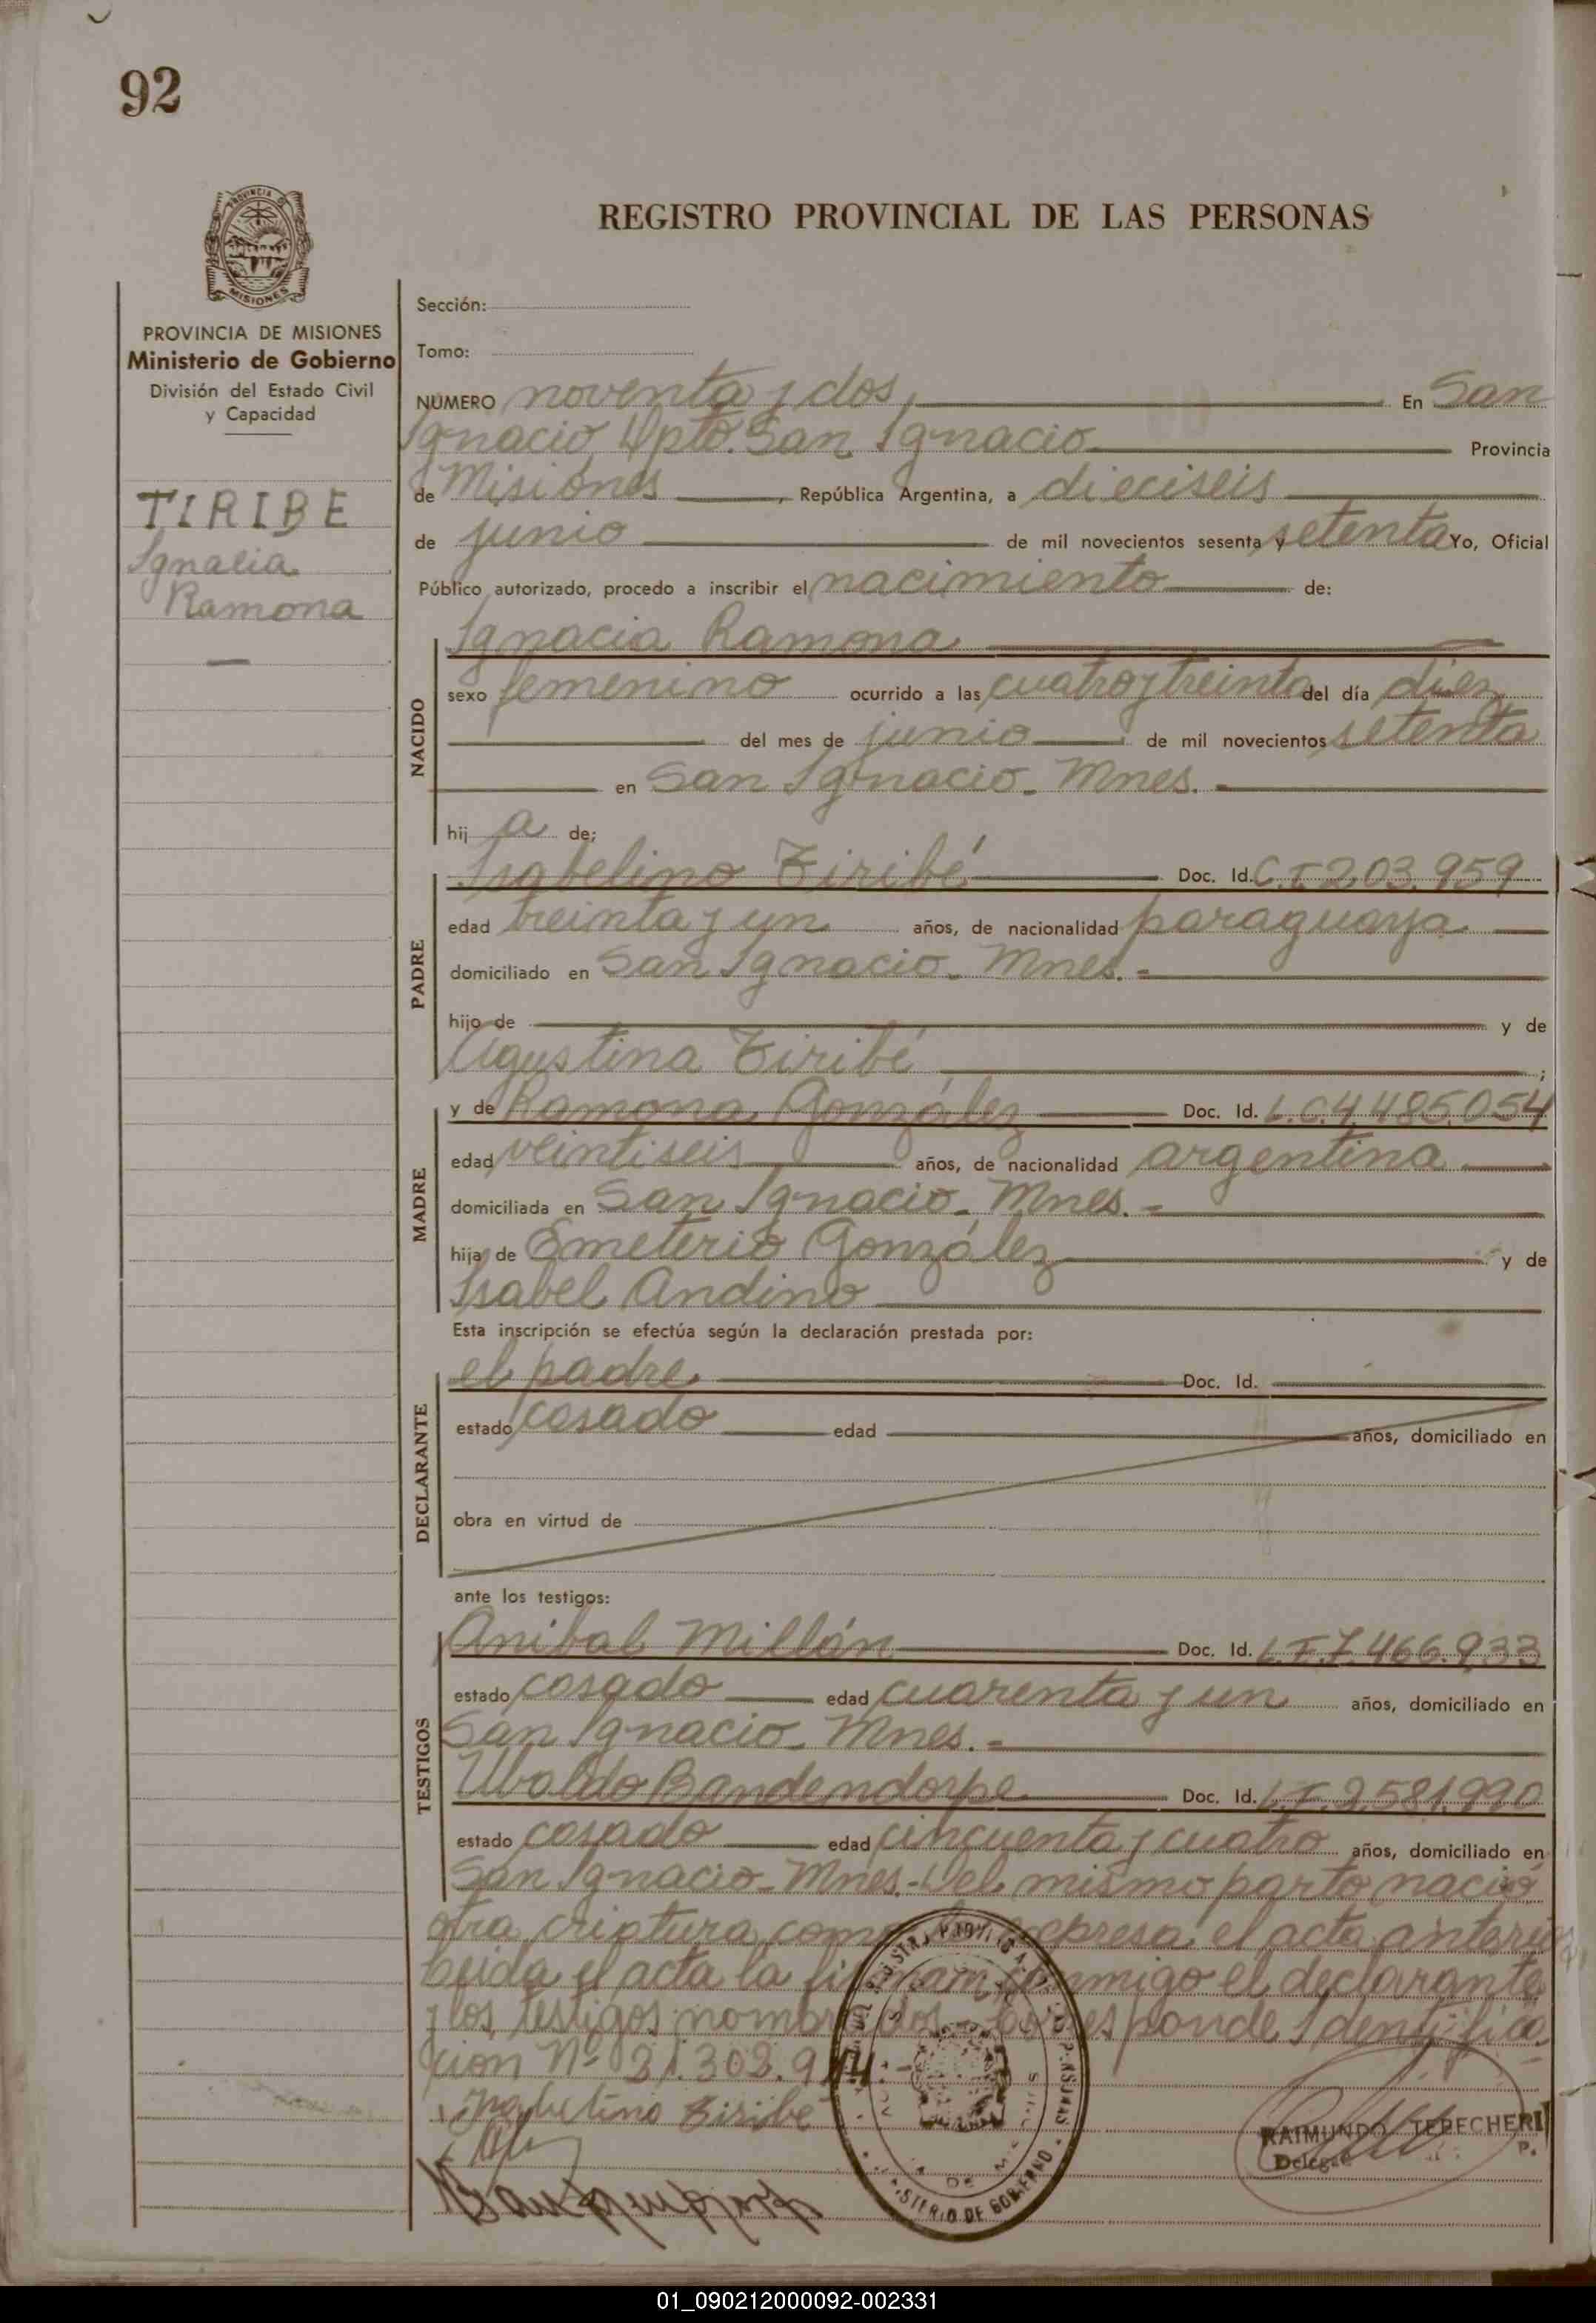 92
PROVINCIA DE
MISIONES
REGISTRO PROVINCIAL DE LAS PERSONAS
PROVINCIA DE MISIONES
Ministerio de Gobierno
División del Estado Civil
y Capacidad
TIRIBE
Ignacia
Ramona
Sección:
Tomo:
NÚMERO noventa y dos, En San
Ignacio, Dpto. San Ignacio Provincia
de Misiones, República Argentina, a dieciseis
de junio de mil novecientos sesenta y setenta Yo, Oficial
Público autorizado, procedo a inscribir el nacimiento de:
NACIDO
Ignacia Ramona
sexo femenino ocurrido a las cuatro y treinta del día diez
del mes de junio de mil novecientos setenta
en San Ignacio - Mnes.
hij a de;
PADRE
Isabelino Tiribé Doc. Id. C.I. 203.959
edad treinta y un años, de nacionalidad paraguaya
domiciliado en San Ignacio - Mnes. -
hijo de y de
Agustina Tiribé ;
MADRE
y de Ramona González Doc. Id. L.C. 4.485.054
edad veintiseis años, de nacionalidad argentina
domiciliada en San Ignacio - Mnes. -
hija de Emeterio González y de
Isabel Andino
Esta inscripción se efectúa según la declaración prestada por:
DECLARANTE
el padre Doc. Id.
estado casado edad años, domiciliado en
obra en virtud de
ante los testigos:
TESTIGOS
Anibal Millán Doc. Id. L.E. 7.466.933
estado casado edad cuarenta y un años, domiciliado en
San Ignacio - Mnes. -
Ubaldo Bandendorpe Doc. Id. L.E. 2.581.990
estado casado edad cincuenta y cuatro años, domiciliado en
San Ignacio - Mnes. - Del mismo parto nació
otra criatura como expresa el acta anterior
Leida el acta la firman conmigo el declarante
y los testigos nombrados - Corresponde Identifica
ción Nº 21.302.944.
Isabelino Tiribe
RAIMUNDO TEPECHERI
MINISTERIO DE GOBIERNO
01_090212000092-002331